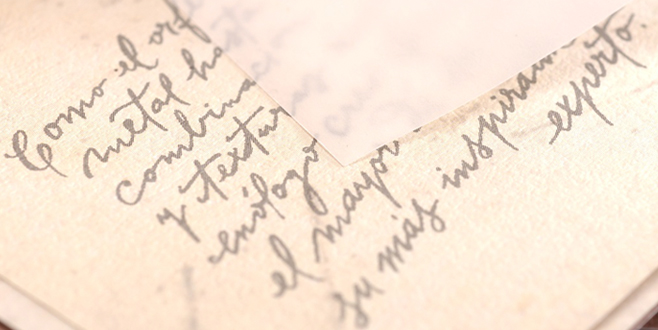 Como el orf
metal hast
combina
y texturas
enólogo cre
el mayor
su más inspiram
experto.